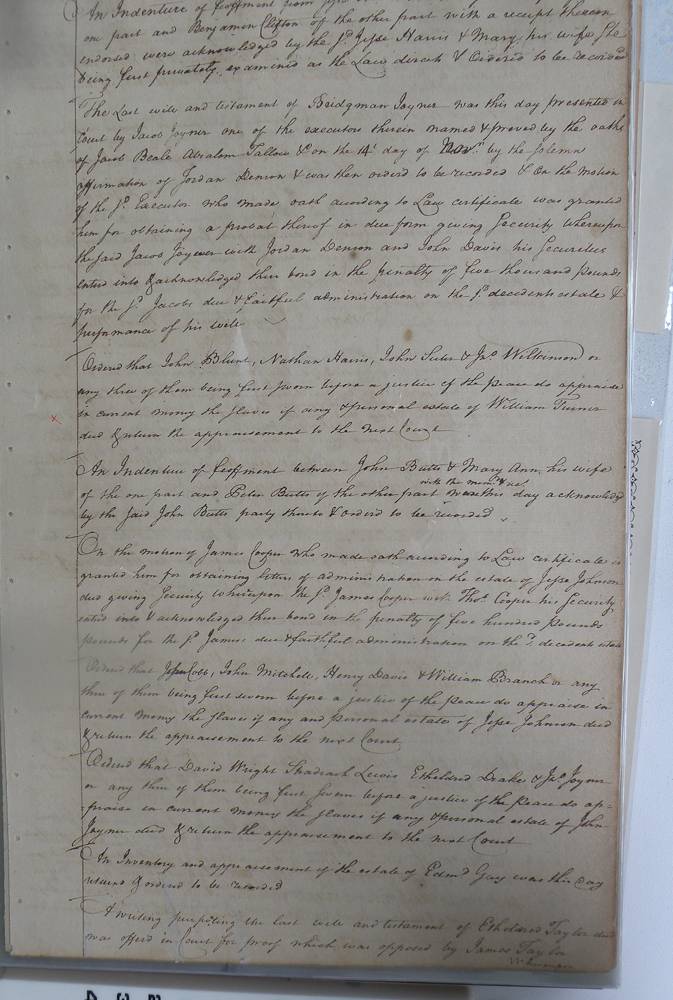 An Indenture of feoffment from
one part and Benjamin Clifton of the other part with a receipt thereon
endorsed were acknowledged by the sd. Jesse Harris & Mary his wife she
being first privately examined as the Law directs & Ordered to be recorded
The Last will and testament of Bridgman Joyner was this day presented in
Court by Jacob Joyner one of the executors therein named & proved by the oaths
of Jacob Beale Absalom Tallow & on the 14t day of Novr. by the solemn
affirmation of Jordan Denson & was then orderd to be recorded & On the motion
of the sd. Executor who made oath according to Law certificate was granted
him for obtaining a probat thereof in due form giving Security whereupon
the said Jacob Joyner with Jordan Denson and John Davis his Securities
enterd into & acknowledged their bond in the penalty of five thousand pounds
for the sd. Jacobs due & faithful administration on the sd. decedents estate &
performance of his will
Orderd that John Blunt, Nathan Harris, John Suter & Jno. Wilkinson or
any three of them being first sworn before a justice of the peace do appraise
in current money the slaves if any & personal estate of William Turner
decd & return the appraisement to the next Court
An Indenture of feoffment between John Butts & Mary Ann his wife
with the memo. & rect.
of the one part and Peter Butts of the other part were this day acknowledgd
by the said John Butts party thereto & orderd to be recorded
On the motion of James Cooper who made oath according to Law certificate is
granted him for obtaining letters of administration on the estate of Jesse Johnson
decd giving Security whereupon the sd. James Cooper with Thos. Cooper his Security
enterd into & acknowledged their bond in the penalty of five hundred pounds
pounds for the sd James due & faithful administration on the sd. decedents estate
Orderd that Jesse Cobb, John Mitchell, Henry Davis & William Branch or any
three of them being first sworn before a justice of the peace do appraise in
current money the slaves if any and personal estate of Jesse Johnson decd
& return the appraisement to the next Court
Orderd that David Wright Shadrach Lewis Etheldred Drake & Jno. Joyner
or any three of them being first sworn before a justice of the peace do ap=
=praise in current money the slaves if any & personal estate of John
Joyner decd & return the appraisement to the next Court
An Inventory and appraisement of the estate of Edmd Gay was this day
returnd & orderd to be recorded
A writing purporting the last will and testament of Etheldred Taylor decd
was offerd in Court for proof which was opposed by James Taylor
Whereupon